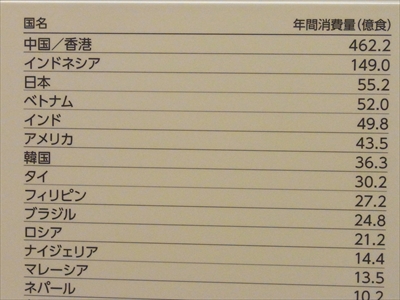 国名 年間消費量(億食)
中国／香港 462.2
インドネシア 149.0
日本 55.2
ベトナム 52.0
インド 49.8
アメリカ 43.5
韓国 36.3
タイ 30.2
フィリピン 27.2
ブラジル 24.8
ロシア 21.2
ナイジェリア 14.4
マレーシア 13.5
ネパール 10.2